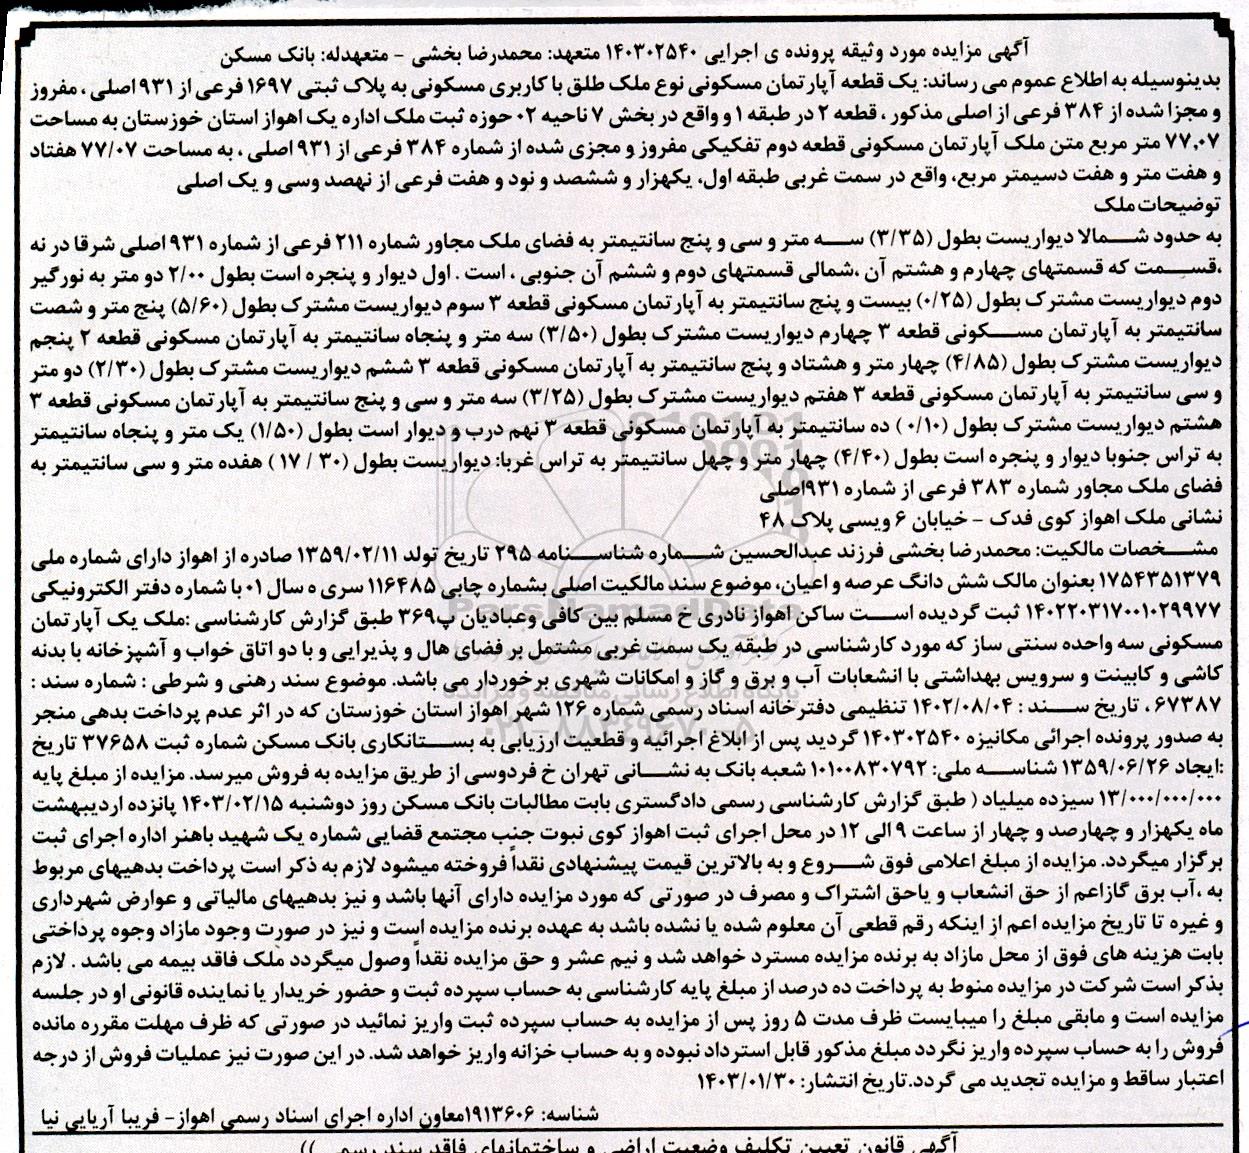 آگهی مزایده مورد وثیقه پرونده ی اجرایی ۱۴۰۳۰۲۵۴۰ متعهد: محمدرضا بخشی - متعهدله: بانک مسکن
بدینوسیله به اطلاع عموم می رساند: یک قطعه آپارتمان مسکونی نوع ملک طلق با کاربری مسکونی به پلاک ثبتی ۱۶۹۷ فرعی از ۹۳۱ اصلی ، مفروز
و مجزا شده از ۳۸۴ فرعی از اصلی مذکور ، قطعه ۲ در طبقه ۱ و واقع در بخش ۷ ناحیه ۰۲ حوزه ثبت ملک اداره یک اهواز استان خوزستان به مساحت
۷۷.۰۷ متر مربع متن ملک آپارتمان مسکونی قطعه دوم تفکیکی مفروز و مجزی شده از شماره ۳۸۴ فرعی از ۹۳۱ اصلی ، به مساحت ۷۷/۰۷ هفتاد
و هفت متر و هفت دسیمتر مربع، واقع در سمت غربی طبقه اول، یکهزار و ششصد و نود و هفت فرعی از نهصد وسی و یک اصلی
توضیحات ملک
به حدود شمالا دیواریست بطول (۳/۳۵) سه متر و سی و پنج سانتیمتر به فضای ملک مجاور شماره ۲۱۱ فرعی از شماره ۹۳۱ اصلی شرقا در نه
،قسمت که قسمتهای چهارم و هشتم آن ،شمالی قسمتهای دوم و ششم آن جنوبی ، است . اول دیوار و پنجره است بطول ۲/۰۰ دو متر به نورگیر
دوم دیواریست مشترک بطول (۰/۲۵) بیست و پنج سانتیمتر به آپارتمان مسکونی قطعه ۳ سوم دیواریست مشترک بطول (۵/۶۰) پنج متر و شصت
سانتیمتر به آپارتمان مسکونی قطعه ۳ چهارم دیواریست مشترک بطول (۳/۵۰) سه متر و پنجاه سانتیمتر به آپارتمان مسکونی قطعه ۲ پنجم
دیواریست مشترک بطول (۴/۸۵) چهار متر و هشتاد و پنج سانتیمتر به آپارتمان مسکونی قطعه ۳ ششم دیواریست مشترک بطول (۲/۳۰) دو متر
و سی سانتیمتر به آپارتمان مسکونی قطعه ۳ هفتم دیواریست مشترک بطول (۳/۲۵) سه متر و سی و پنج سانتیمتر به آپارتمان مسکونی قطعه ۳
هشتم دیواریست مشترک بطول (۰/۱۰) ده سانتیمتر به آپارتمان مسکونی قطعه ۳ نهم درب و دیوار است بطول (۱/۵۰) یک متر و پنجاه سانتیمتر
به تراس جنوبا دیوار و پنجره است بطول (۴/۴۰) چهار متر و چهل سانتیمتر به تراس غربا: دیواریست بطول (۳۰ / ۱۷) هفده متر و سی سانتیمتر به
فضای ملک مجاور شماره ۳۸۳ فرعی از شماره ۹۳۱اصلی
نشانی ملک اهواز کوی فدک - خیابان ۶ ویسی پلاک ۴۸
مشخصات مالکیت: محمدرضا بخشی فرزند عبدالحسین شماره شناسنامه ۲۹۵ تاریخ تولد ۱۳۵۹/۰۲/۱۱ صادره از اهواز دارای شماره ملی
۱۷۵۴۳۵۱۳۷۹ بعنوان مالک شش دانگ عرصه و اعیان، موضوع سند مالکیت اصلی بشماره چاپی ۱۱۶۴۸۵ سری ه سال ۰۱ با شماره دفتر الکترونیکی
۱۴۰۲۲۰۳۱۷۰۰۱۰۲۹۹۷۷ ثبت گردیده است ساکن اهواز نادری خ مسلم بین کافی وعبادیان پ۳۶۹ طبق گزارش کارشناسی :ملک یک آپارتمان
مسکونی سه واحده سنتی ساز که مورد کارشناسی در طبقه یک سمت غربی مشتمل بر فضای هال و پذیرایی و با دو اتاق خواب و آشپزخانه با بدنه
کاشی و کابینت و سرویس بهداشتی با انشعابات آب و برق و گاز و امکانات شهری برخوردار می باشد. موضوع سند رهنی و شرطی : شماره سند :
۶۷۳۸۷ ، تاریخ سند : ۱۴۰۲/۰۸/۰۴ تنظیمی دفترخانه اسناد رسمی شماره ۱۲۶ شهر اهواز استان خوزستان که در اثر عدم پرداخت بدهی منجر
به صدور پرونده اجرائی مکانیزه ۱۴۰۳۰۲۵۴۰ گردید پس از ابلاغ اجرائیه و قطعیت ارزیابی به بستانکاری بانک مسکن شماره ثبت ۳۷۶۵۸ تاریخ
:ایجاد ۱۳۵۹/۰۶/۲۶ شناسه ملی: ۱۰۱۰۰۸۳۰۷۹۲ شعبه بانک به نشانی تهران خ فردوسی از طریق مزایده به فروش میرسد. مزایده از مبلغ پایه
۱۳/۰۰۰/۰۰۰/۰۰۰ سیزده میلیاد ( طبق گزارش کارشناسی رسمی دادگستری بابت مطالبات بانک مسکن روز دوشنبه ۱۴۰۳/۰۲/۱۵ پانزده اردیبهشت
ماه یکهزار و چهارصد و چهار از ساعت ۹ الی ۱۲ در محل اجرای ثبت اهواز کوی نبوت جنب مجتمع قضایی شماره یک شهید باهنر اداره اجرای ثبت
برگزار میگردد. مزایده از مبلغ اعلامی فوق شروع و به بالاترین قیمت پیشنهادی نقداً فروخته میشود لازم به ذکر است پرداخت بدهیهای مربوط
به ،آب برق گازاعم از حق انشعاب و یاحق اشتراک و مصرف در صورتی که مورد مزایده دارای آنها باشد و نیز بدهیهای مالیاتی و عوارض شهرداری
و غیره تا تاریخ مزایده اعم از اینکه رقم قطعی آن معلوم شده یا نشده باشد به عهده برنده مزایده است و نیز در صورت وجود مازاد وجوه پرداختی
بابت هزینه های فوق از محل مازاد به برنده مزایده مسترد خواهد شد و نیم عشر و حق مزایده نقداً وصول میگردد ملک فاقد بیمه می باشد . لازم
بذکر است شرکت در مزایده منوط به پرداخت ده درصد از مبلغ پایه کارشناسی به حساب سپرده ثبت و حضور خریدار یا نماینده قانونی او در جلسه
مزایده است و مابقی مبلغ را میبایست ظرف مدت ۵ روز پس از مزایده به حساب سپرده ثبت واریز نمائید در صورتی که ظرف مهلت مقرره مانده
فروش را به حساب سپرده واریز نگردد مبلغ مذکور قابل استرداد نبوده و به حساب خزانه واریز خواهد شد. در این صورت نیز عملیات فروش از درجه
اعتبار ساقط و مزایده تجدید می گردد.تاریخ انتشار: ۱۴۰۳/۰۱/۳۰
شناسه: ۱۹۱۳۶۰۶معاون اداره اجرای اسناد رسمی اهواز- فریبا آریایی نیا
آگهی قانون تعیین تکلیف وضعیت اراضی و ساختمانهای فاقد سند رسمی ))
ParsNamadData
پایگاه اطلاع رسانی مناقصه و مزایده